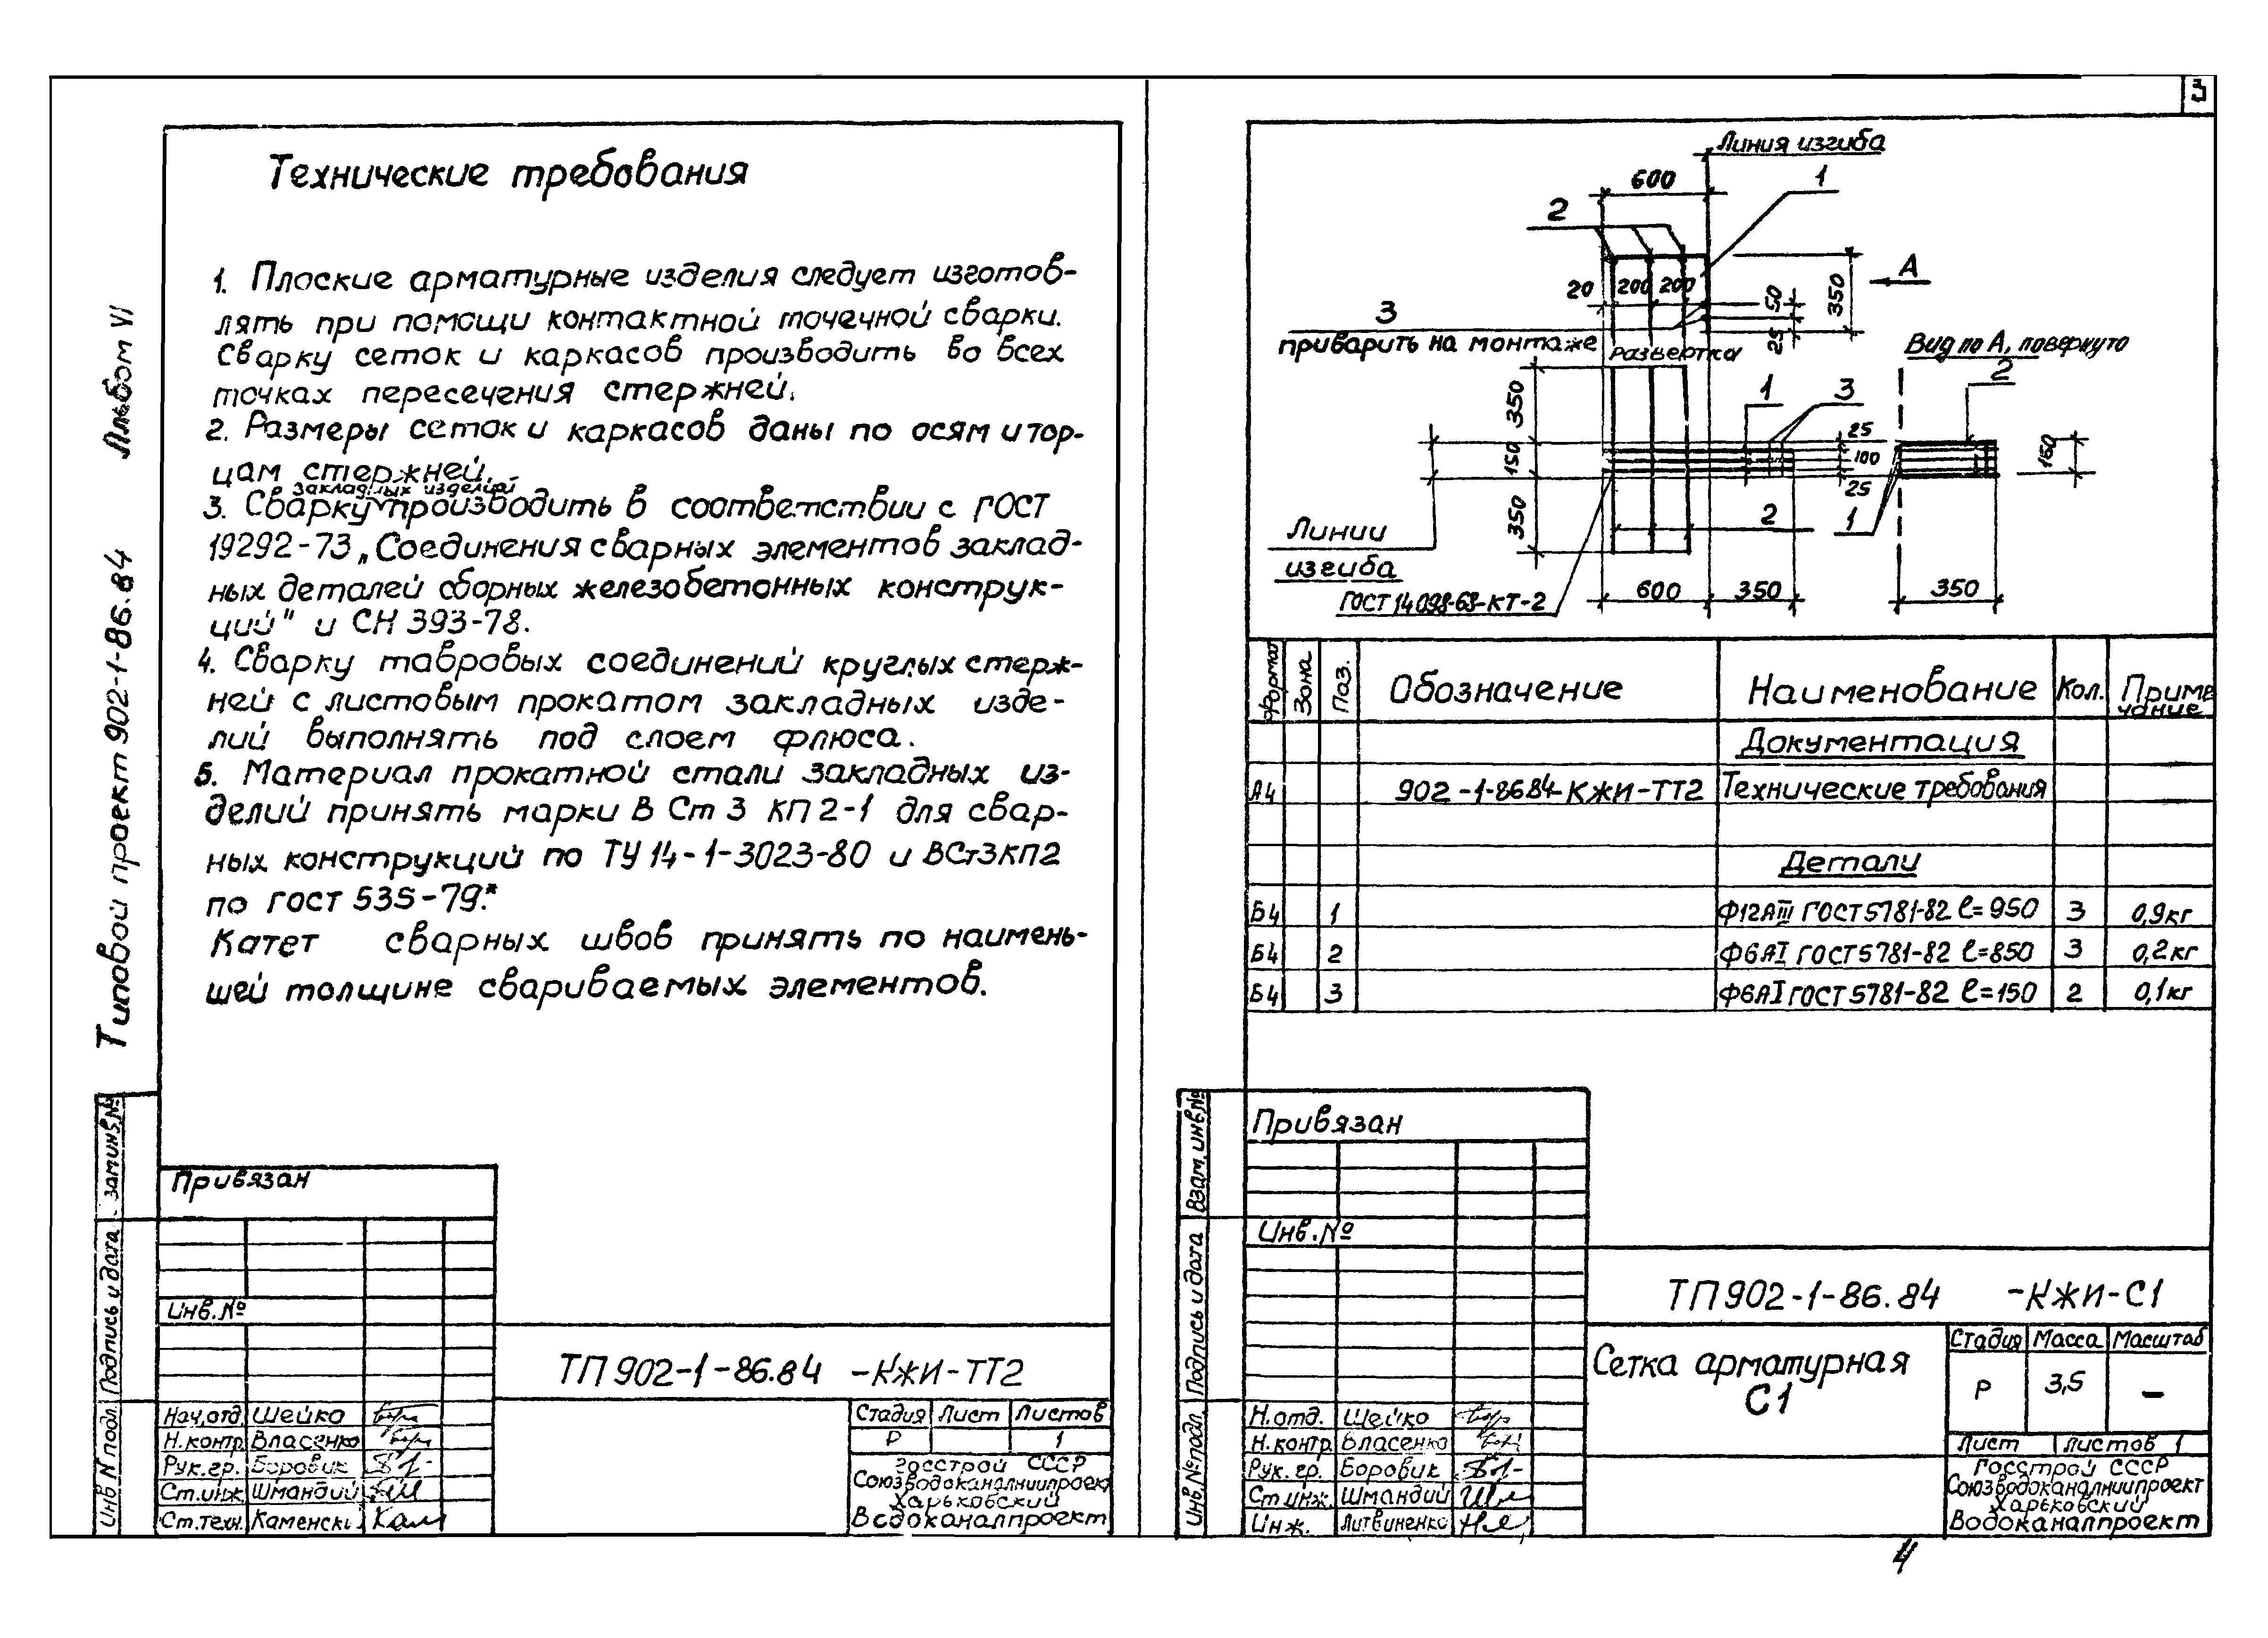 3
Типовой проект 902-1-86.84 Альбом VI
Технические требования
1. Плоские арматурные изделия следует изготов-
лять при помощи контактной точечной сварки.
Сварку сеток и каркасов производить во всех
точках пересечения стержней.
2. Размеры сеток и каркасов даны по осям и тор-
цам стержней.
закладных изделий
3. Сварку производить в соответствии с ГОСТ
19292-73 „Соединения сварных элементов заклад-
ных деталей сборных железобетонных конструк-
ций" и СН 393-78.
4. Сварку тавровых соединений круглых стерж-
ней с листовым прокатом закладных изде-
лий выполнять под слоем флюса.
5. Материал прокатной стали закладных из-
делий принять марки В Ст 3 КП 2-1 для свар-
ных конструкций по ТУ 14-1-3023-80 и ВСт3КП2
по ГОСТ 535-79.*
Катет сварных швов принять по наимень-
шей толщине свариваемых элементов.
Привязан
Инв.№
ТП 902-1-86.84 -КЖИ-ТТ2
Нач.отд. Шейко
Н.контр. Власенко
Рук.гр. Боровик
Ст.инж. Шмандий
Ст.техн. Каменск
Стадия Лист Листов
Р 1
Госстрой СССР
Союзводоканалниипроект
Харьковский
Водоканалпроект
Инв.N подл. Подпись и дата
Линия изгиба
600
1
2
А
20 200 200
50
350
25
3
приварить на монтаже
Развертка
Вид по А, повернуто
2
1 3
350
150
350
25
100
25
150
Линии
изгиба
2
1
ГОСТ 14098-68-КТ-2
600 350
350
Формат Зона Поз. Обозначение Наименование Кол. Приме
чание
Документация
А4 902-1-86.84-КЖИ-ТТ2 Технические требования
Детали
Б4 1 Ф12АIII ГОСТ 5781-82 ℓ=950 3 0,9кг
Б4 2 Ф6АI ГОСТ 5781-82 ℓ=850 3 0,2кг
Б4 3 Ф6АI ГОСТ 5781-82 ℓ=150 2 0,1кг
Привязан
Инв.№
ТП 902-1-86.84 -КЖИ-С1
Сетка арматурная
С1
Стадия Масса Масштаб
Р 3,5 –
Лист Листов 1
Н.отд. Шейко
Н.контр. Власенко
Рук.гр. Боровик
Ст.инж. Шмандий
Инж. Литвиненко
Госстрой СССР
Союзводоканалниипроект
Харьковский
Водоканалпроект
Инв.№подл. Подпись и дата Взам.инв.№
4